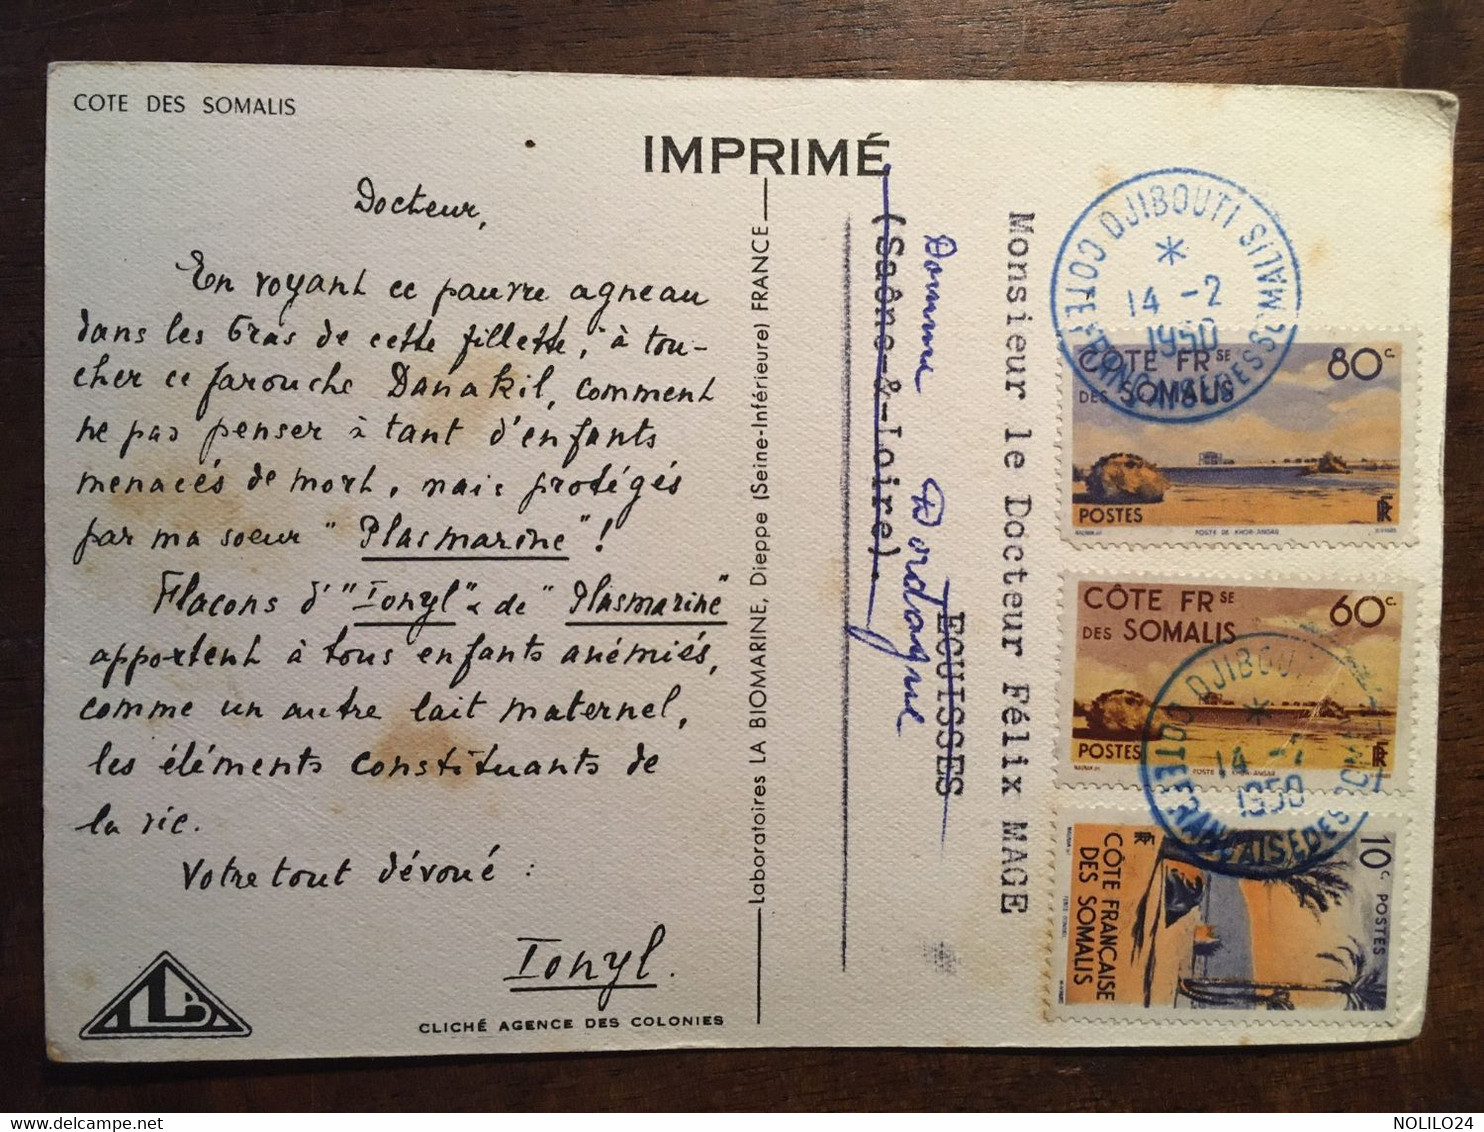 COTE DES SOMALIS
IMPRIMÉ
Docteur,
En voyant ce pauvre agneau
dans les bras de cette fillette, à tou-
cher ce farouche Danakil, comment
ne pas penser à tant d'enfants
menacés de mort, mais protégés
par ma soeur "Plasmarine"!
Flacons d'"Ionyl" & de "Plasmarine"
apportent à tous enfants anémiés,
comme un autre lait maternel,
les éléments constituants de
la vie.
Votre tout dévoué :
Ionyl.
CLICHÉ AGENCE DES COLONIES
Laboratoires LA BIOMARINE, Dieppe (Seine-Inférieure) FRANCE
Monsieur le Docteur Félix MAGE
ECUISSES
(Saône-&-Loire).
Domme Dordogne
DJIBOUTI
COTE FRANÇAISE DES SOMALIS
14 -2
1950
CÔTE FRSE
DES SOMALIS
80c.
POSTES
POSTE DE KHOR-ANGAR
CÔTE FRSE
DES SOMALIS
60c.
POSTES
POSTE DE KHOR-ANGAR
DJIBOU
COTE FRANÇAISE DES SO
14 -2
1950
10c. POSTES
CÔTE FRANÇAISE
DES SOMALIS
NOLILO24